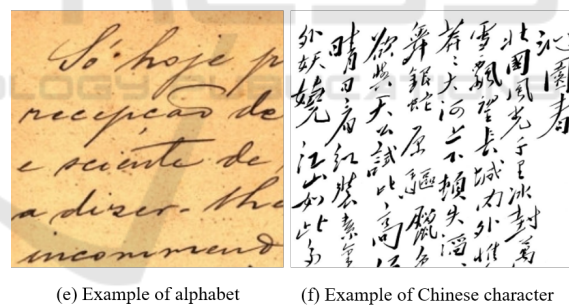 Só hoje p
recepção de
e sciente de
a dizer-the
incommend
沁園春
北國風光千里冰封萬
雪飄望長城内外惟
莽々大河上下頓失滔
舞銀蛇原驅臘
欲與天公試比高
晴日看紅裝素
外妖嬈江山如此多
(e) Example of alphabet
(f) Example of Chinese character